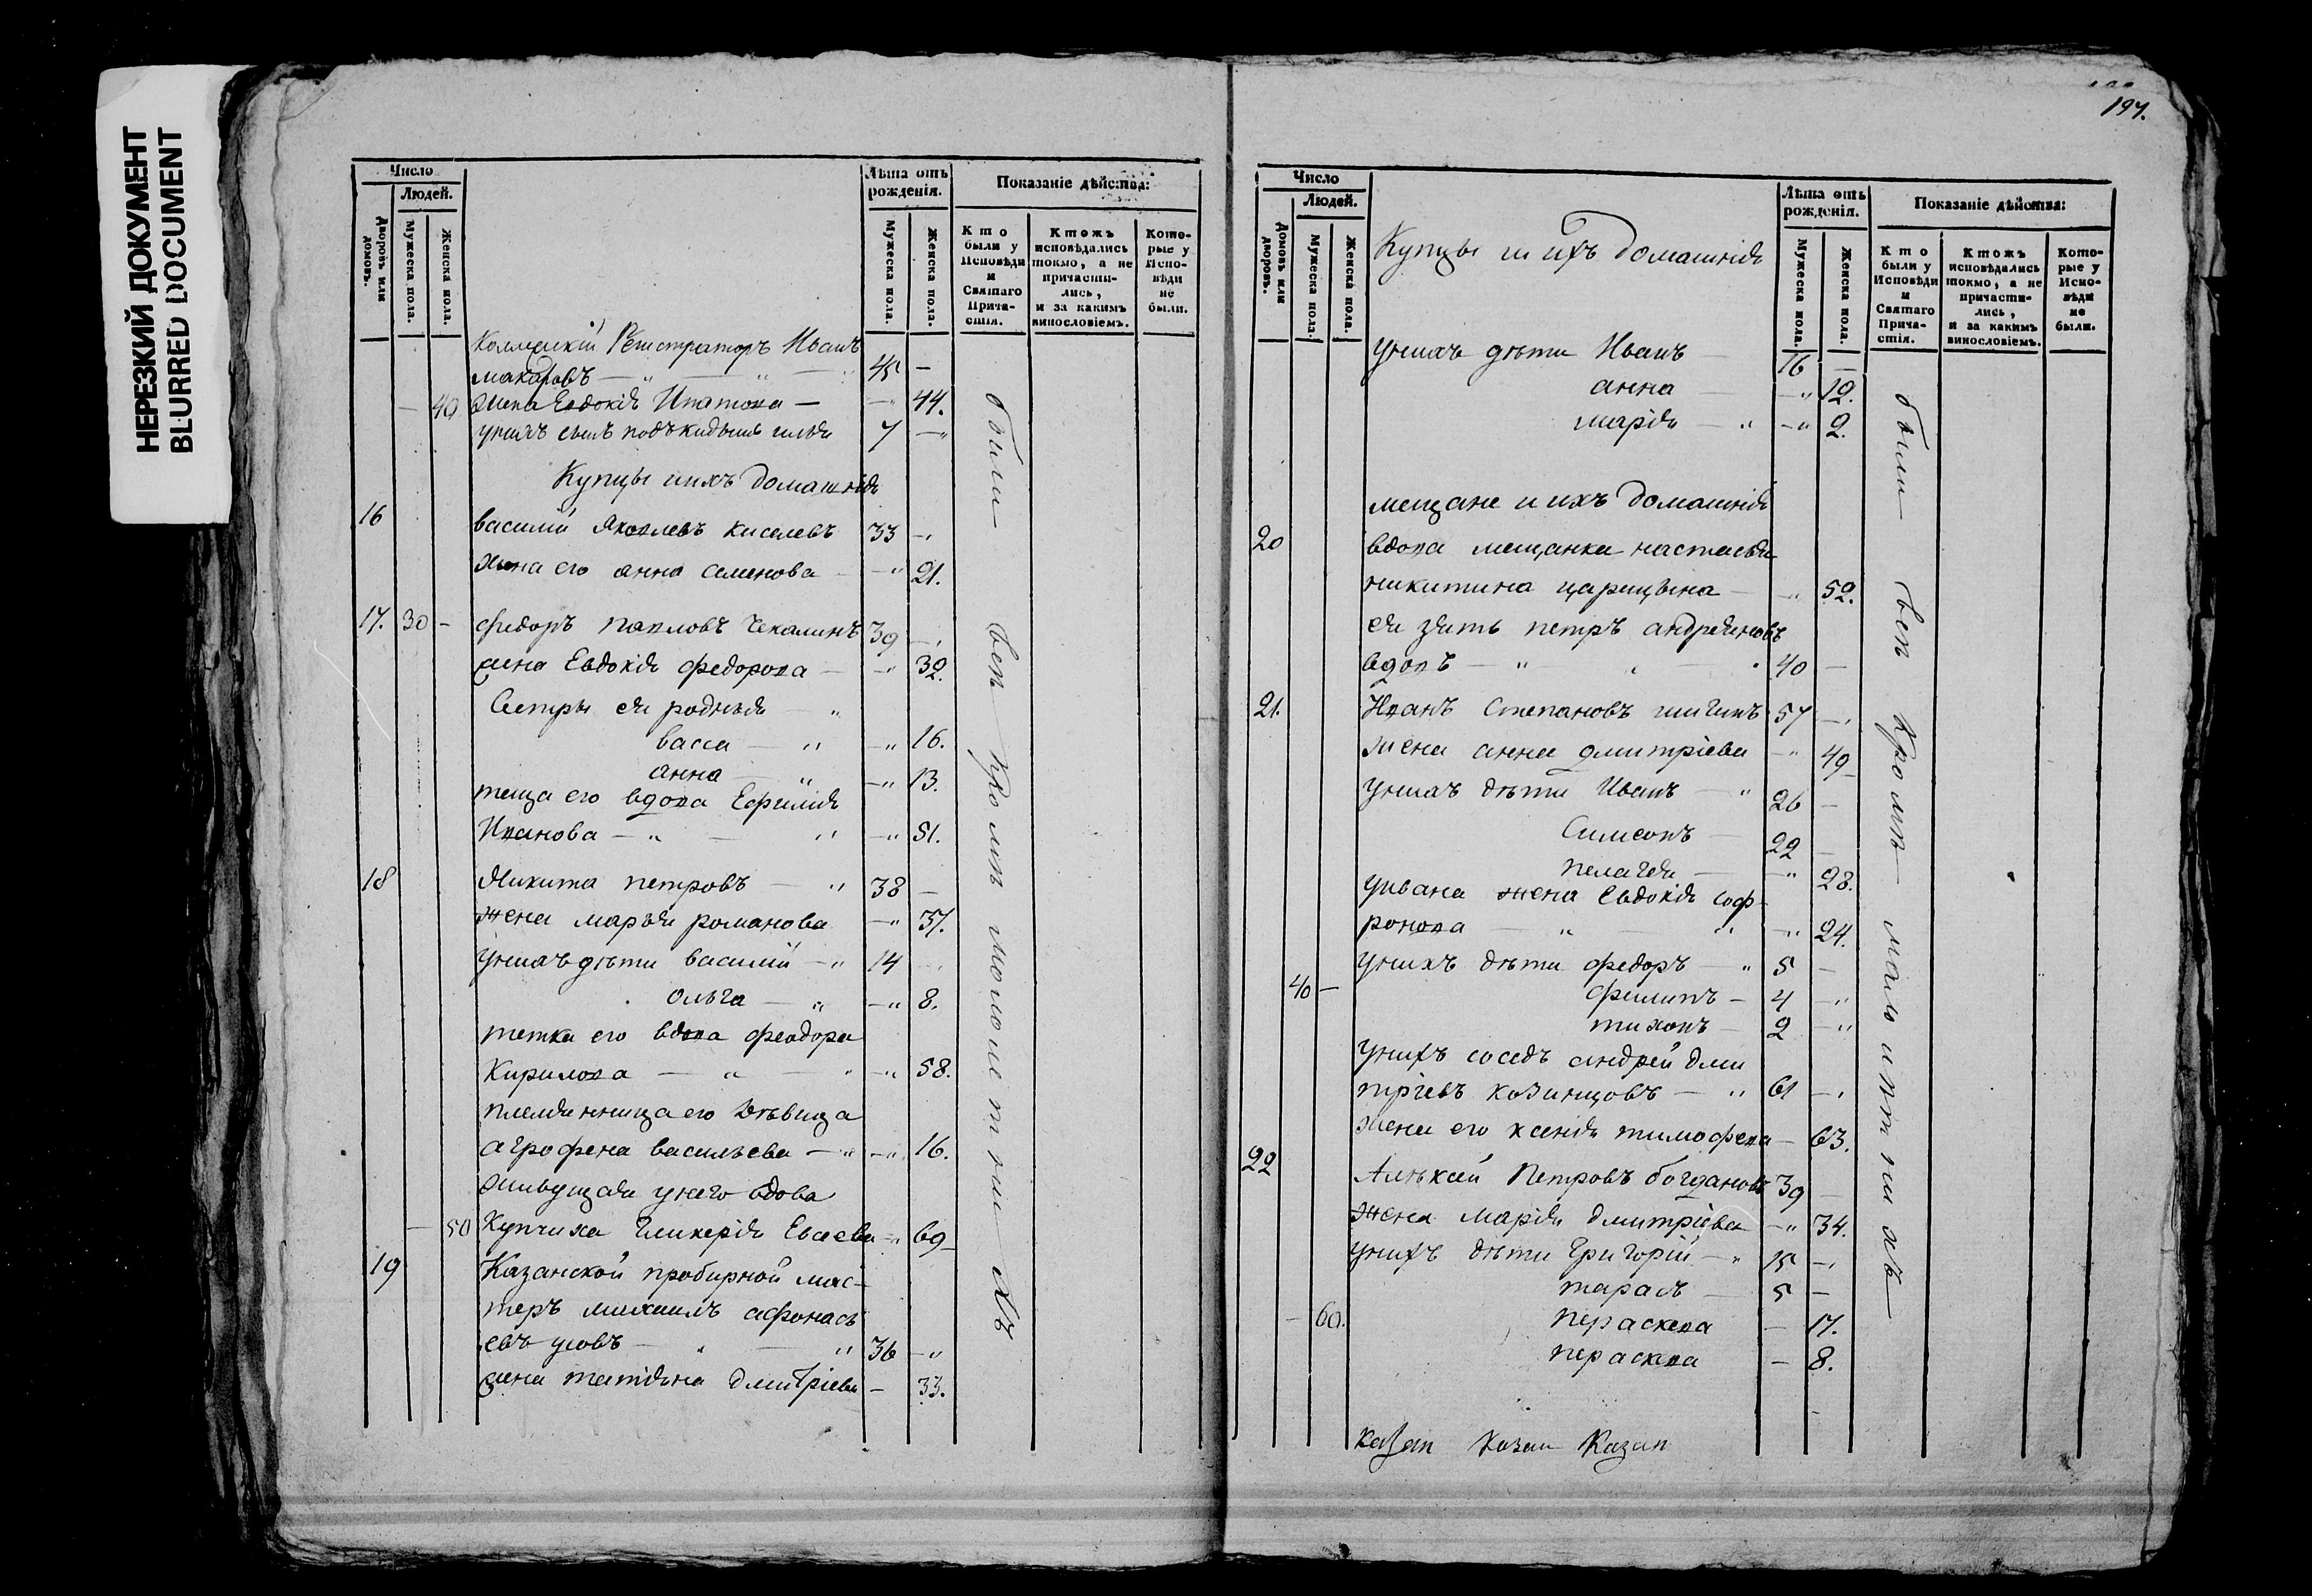 НЕРЕЗКИЙ ДОКУМЕНТ
BLURRED DOCUMENT
Число
Людей.
Дворовъ или домовъ.
Мужеска пола.
Женска пола.
Лѣта отъ рожденія.
Мужеска пола.
Женска пола.
Показаніе дѣйства:
Кто были у Исповѣди и Святаго Прича-стія.
Ктожъ исповѣдались токмо, а не причасти-лись, и за какимъ винословіемъ.
Кото-рые у Испо-вѣди не были.
Регистраторъ Иванъ
макаровъ — 45 —
— 40 жена Евдокія Ипатова — 44.
унихъ сынъ подъкидышъ илья 7 —
Купцы иихъ домашнія
16 василій Яковлевъ киселевъ 33 —
жена его анна семенова — 21.
17. 30 — федоръ павловъ Чекалинъ 39 —
жена Евдокія федорова — 32.
Сестры ея родныя —
васса — 16.
анна — 13.
теща его вдова Ефимія
Иванова — 51.
18 Никита петровъ — 38 —
жена марья романова — 37.
унихъ дѣти василій — 14
ольга — 8.
тетка его вдова феодора
Кирилова — 58.
племянница его дѣвица
агрофена васильева — 16.
живущая унего вдова
— 50 Купчиха гликерія Евсева — 69
19 Казанской пробирной мас-
теръ михаилъ афонась
евъ усовъ — 36 —
жена татіяна дмитріева — 33.
были всѣ кромѣ мололетнихъ
197.
Число
Людей.
Домовъ или дворовъ.
Мужеска пола
Женска пола.
Купцы и ихъ домашнія
Лѣта отъ рожденія.
Мужеска пола.
Женска пола.
Показаніе дѣйства:
Кто были у Исповѣди и Святаго Прича-стія.
Ктожъ исповѣдались токмо, а не причасти-лись, и за какимъ винословіемъ.
Кото-рые у Испо-вѣди не были.
унихъ дѣти Иванъ 16 —
анна — 12.
марія — 2.
мещане и ихъ домашнія
20 вдова мещанка настасья
никитина царицына — 52.
ея зять петръ андреяновъ
вдовъ — 40 —
21. Иванъ степановъ шигинъ 57 —
жена анна дмитріева — 49
унихъ дѣти Иванъ — 26 —
Симеонъ — 22 —
пелагея — 23.
уивана жена Евдокія соф-
ронова — 24.
унихъ дѣти федоръ — 5 —
40 — филипъ — 4 —
тихонъ — 2 —
унихъ соседъ андрей дми
тріевъ казинцовъ — 61 —
жена его ксенія тимофева — 63.
22 Алѣксей Петровъ богдановъ 39 —
жена марія дмитріева — 34.
унихъ дѣти григорій — 15 —
тарасъ — 5 —
— 60. пераскева — 17.
пераскева — 8.
были всѣ кромѣ малолѣтнихъ
казан казан Казан